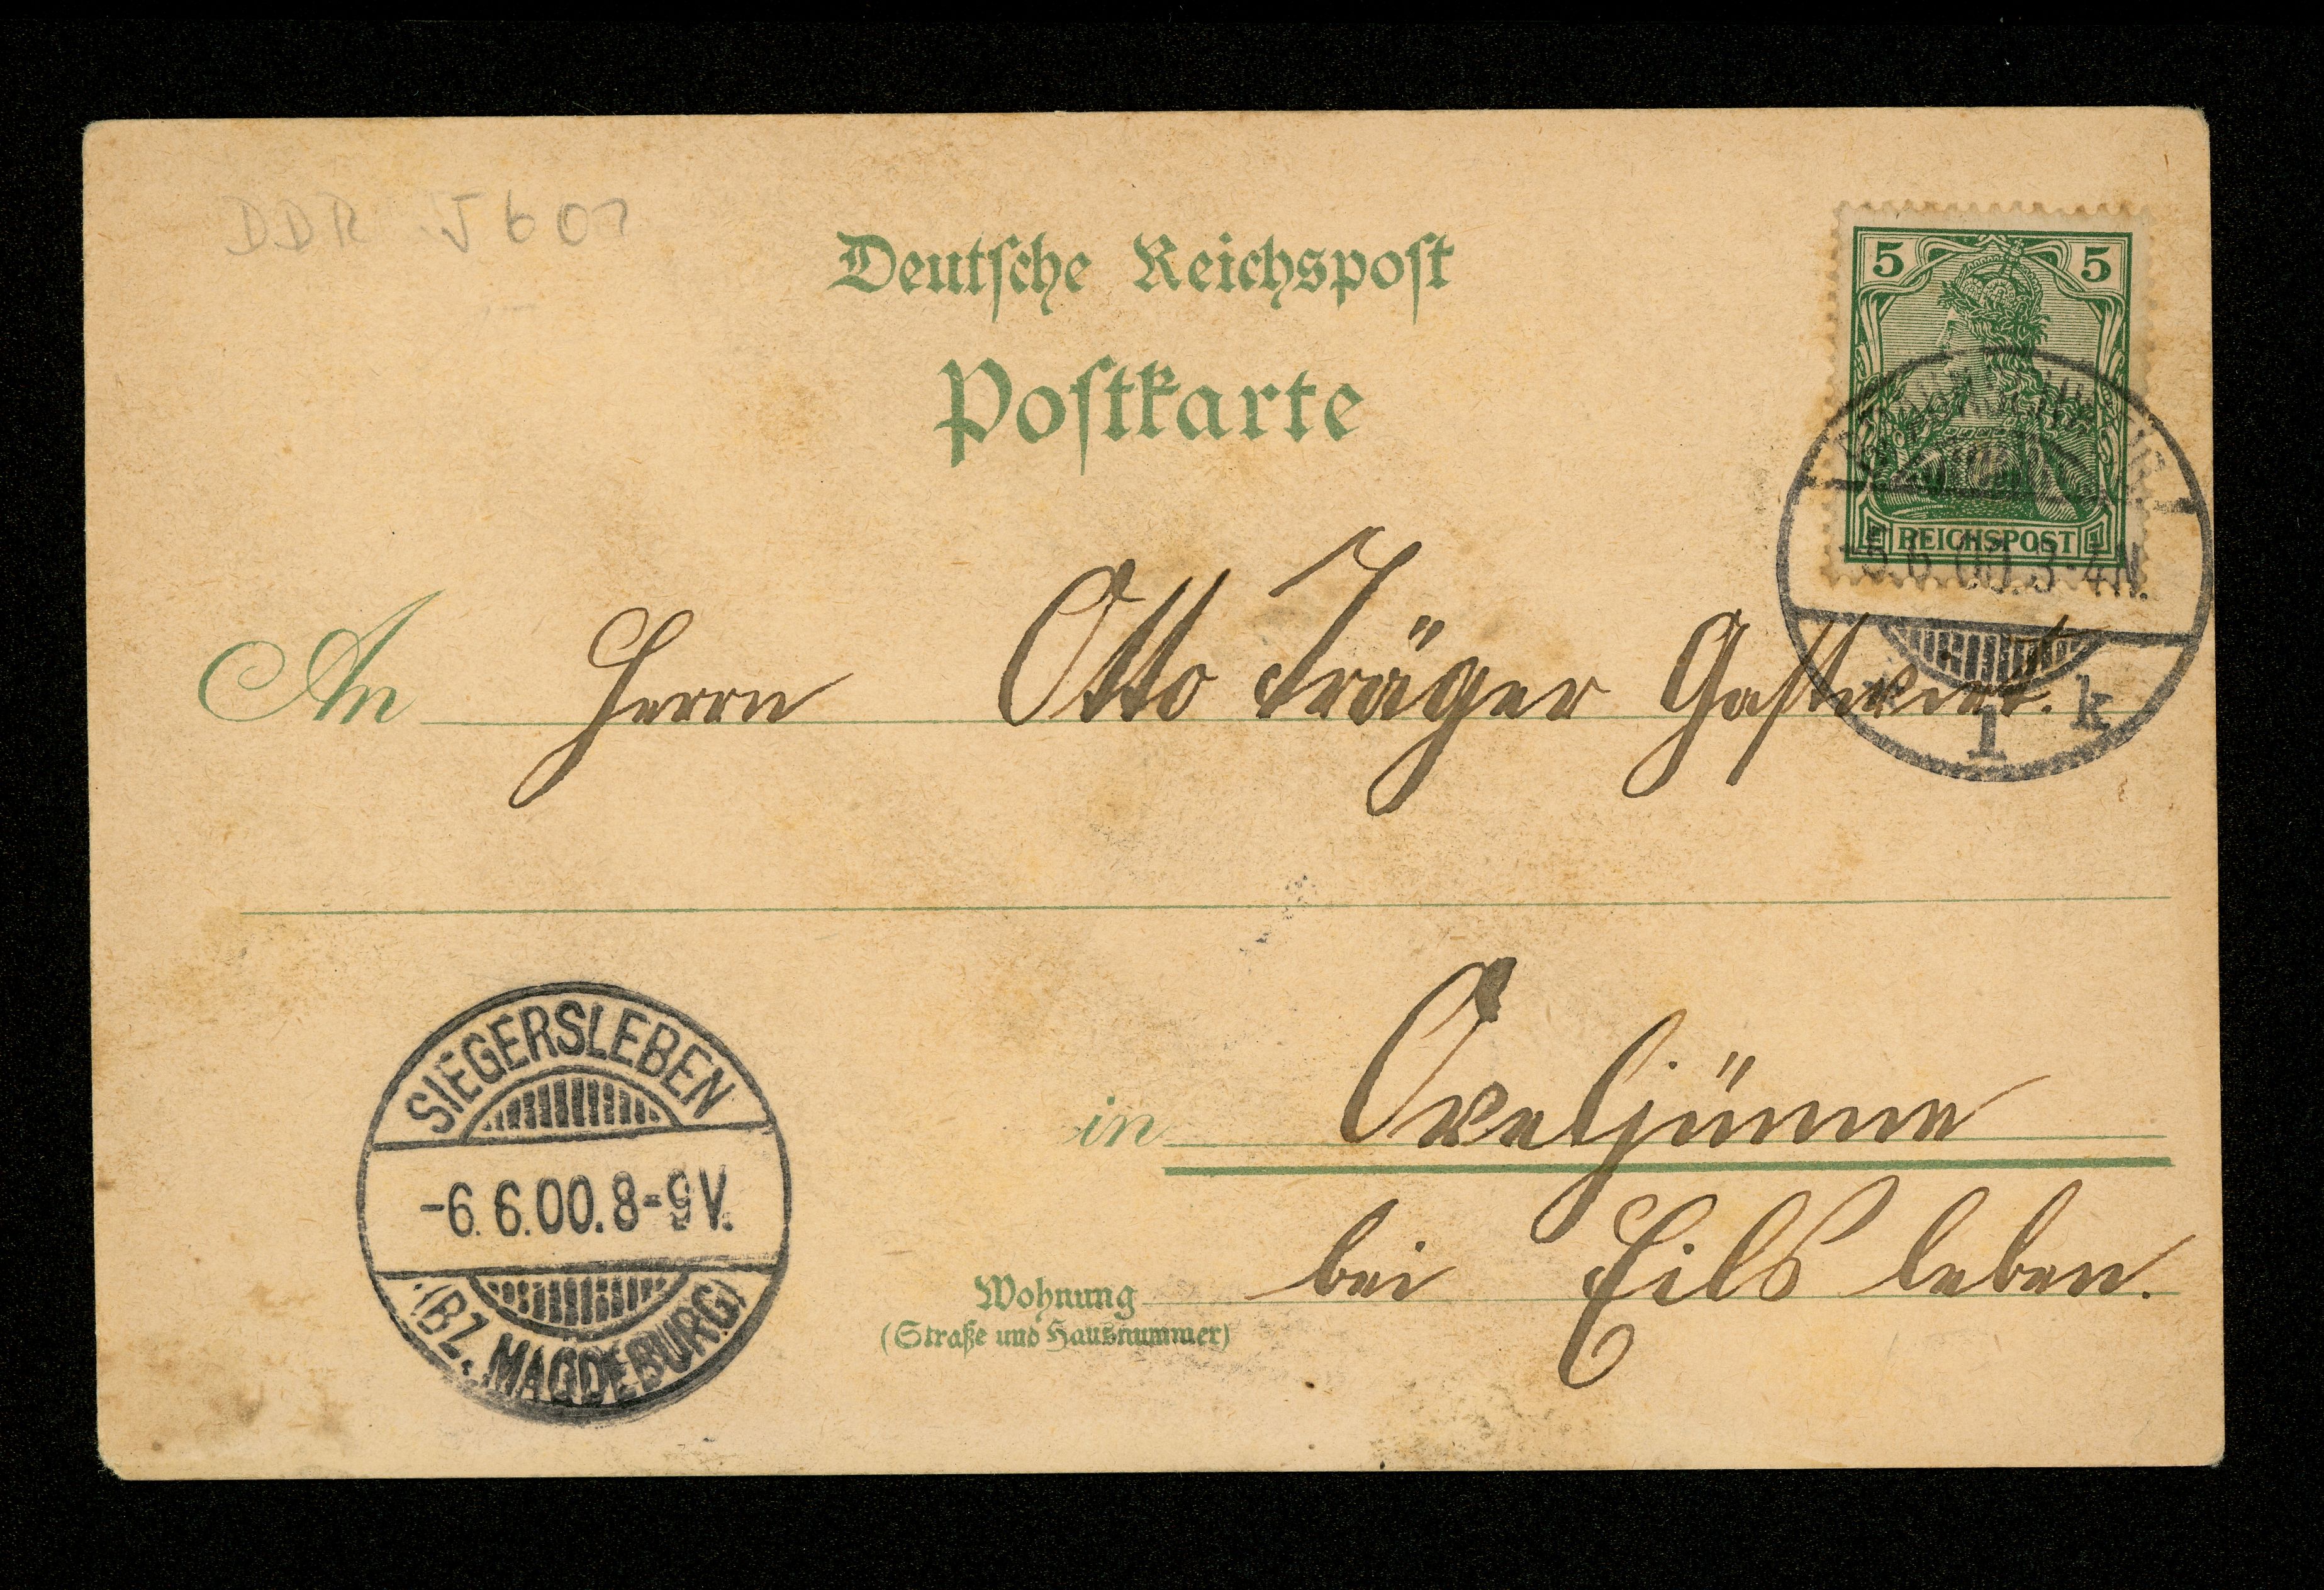 DDR J 607
Deutsche Reichspost
Postkarte
5 5
REICHSPOST
5.6.00.3-4N.
1 k
An Herrn Otto Träger Gastwirt.
SIEGERSLEBEN
-6.6.00.8-9V.
(BZ. MAGDEBURG)
in Ovelgünne
Wohnung bei Eilsleben.
(Straße und Hausnummer)